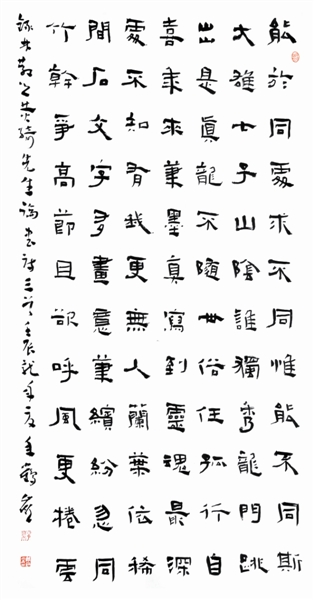 能於同處求不同惟能不同斯
大雄七子山陰誰獨秀龍門跳
出是真龍不隨世俗任孤行自
喜年來筆墨真寫到靈魂最深
處不知有我更無人蘭葉依稀
間石文字多畫意筆繽紛急同
竹幹爭高節且欲呼風更捲雲
黃綺先生論書詩三首壬辰龍年夏